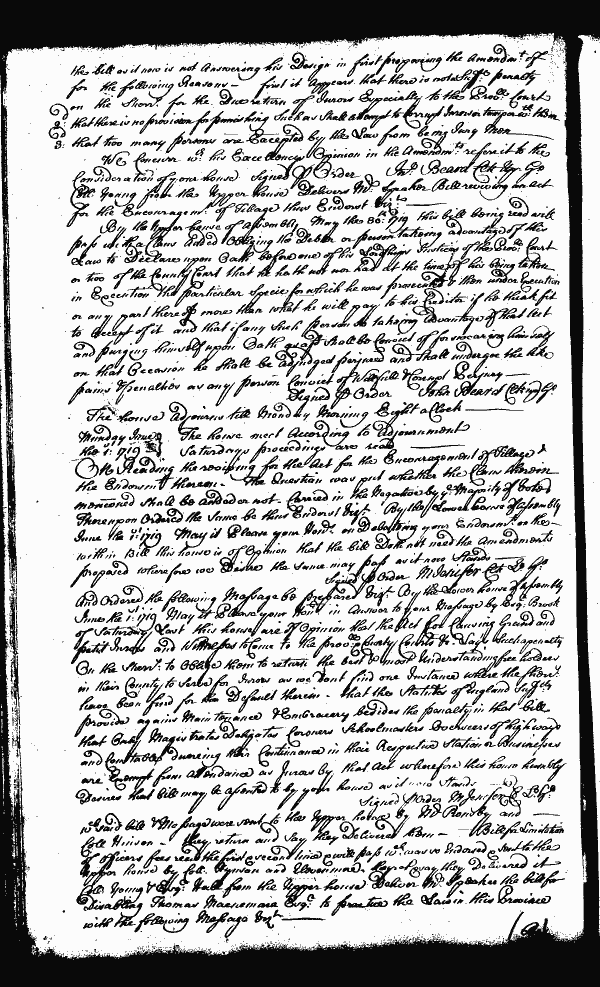 the bill as it now is not Answering his Design in first proposing the Amendmt. of
for the following Reasons - first it appears that there is not a Suffit. penalty
on the Sherr. for the Due return of Jurors Especially to the Provl. Court
2d that there is no provision for punishing Such as Shall attempt to Corrupt Jurors or tamper wth. them
3: that too many persons are Excepted by the Law from being Jury Men
We Concur wth. his Excellencys Opinion in the Amendmts. & refer it to the
Consideration of your house Signed p Order Jno. Beard Clk Up. Ho
Coll. Young from the Upper house Delivers Mr. Speaker Bill reviving an Act
for the Encouragemt. of Tillage thus Endorst Vizt.
By the Upper house of Assembly May the 30th. 1719 this bill being read will
pass with a Claus Added Obliging the Debtor or person takeing advantage of this
Law to Declare upon Oath before one of his Lordships Justices of the Provl. Court
or two of the County Court that he hath not nor had at the time of his being taken
in Execution the particular Specie for which he was prosecuted & then under Execution
or any part thereof more than what he will pay to his Creditor if he think fit
to accept of it and that if any Such person so takeing advantage of that Act
and purging himself upon Oath as afd. Shall be Convict of forswearing himself
on that Occasion he Shall be adjudged perjured and Shall undergoe the like
pains & penalties as any person Convict of Willfull & Corrupt Perjury
Signed p Order John Beard Clk Up. Ho.
The house adjourns till Monday Morning Eight a Clock
Munday June the 1: 1719 The house meet According to Adjournment
Saturdays proceedings are read
On Reading the reviving for the Act for the Encouragement of Tillage &
the Endorsmt. thereon - The Question was put whether the Claus therein
mentioned Shall be added or not Carried in the Negative by ye. Majority of Voices
Thereupon Ordered the Same be thus Endorst Vizt. By the Lower house of Assembly
June the 1st: 1719 May it Please your Honrs. on Debateing your Endorsmt. on the
within Bill this house is of Opinion that the bill Doth not need the Amendments
proposed wherefore we Desire the Same may pass as it now Stands
Signed p Order M Jenifer Clk Lo. Ho.
And Ordered the following Message be prepared Vizt. By the Lower house of Assembly
June the 1: 1719 May it Please your Honrs. in Answer to your Message by Esqr. Brook
of Saturday Last this house are of Opinion that the Act for Causing Grand and
petit Jurors and Witnesses to come to the provll. & County Courts & Lays Such a penalty
On the Sherrs. to Oblige them to return the best & most understanding free holders
in their County to Serve for Jurors as we dont find one Instance where the Sherrs.
have been fined for the Default therein - that the Statutes of England Suffitly.
provide against Maintenance & Embracery besides the penalty in that bill
that Only Magistrates Delegates Coroners Schoolmasters Overseers of high ways
and Constables dureing their Continuance in their Respective Station or Businesses
are Exempt from attendance as Jurors by that Act wherefore this house humbly
Desires that bill may be assented to by your house as it now Stands
Signed p Order M Jenifer C Lo. Ho.
wch. said bill & Message were sent to the Upper house by Mr. and
Coll. Hinson - they return and Say they Delivered them - Bill for Limitation
of officers fees read the first & second time & will pass wch. was so Endorsed & Sent to the
Upper house by Coll. Hynson and they Delivered it
Coll. Young & Esqr. Hall from the Upper house Deliver Mr. Speaker the bill for
Disabling Thomas Macnemara Esqr. to practice the Law in this Province
with the following Message Vizt.